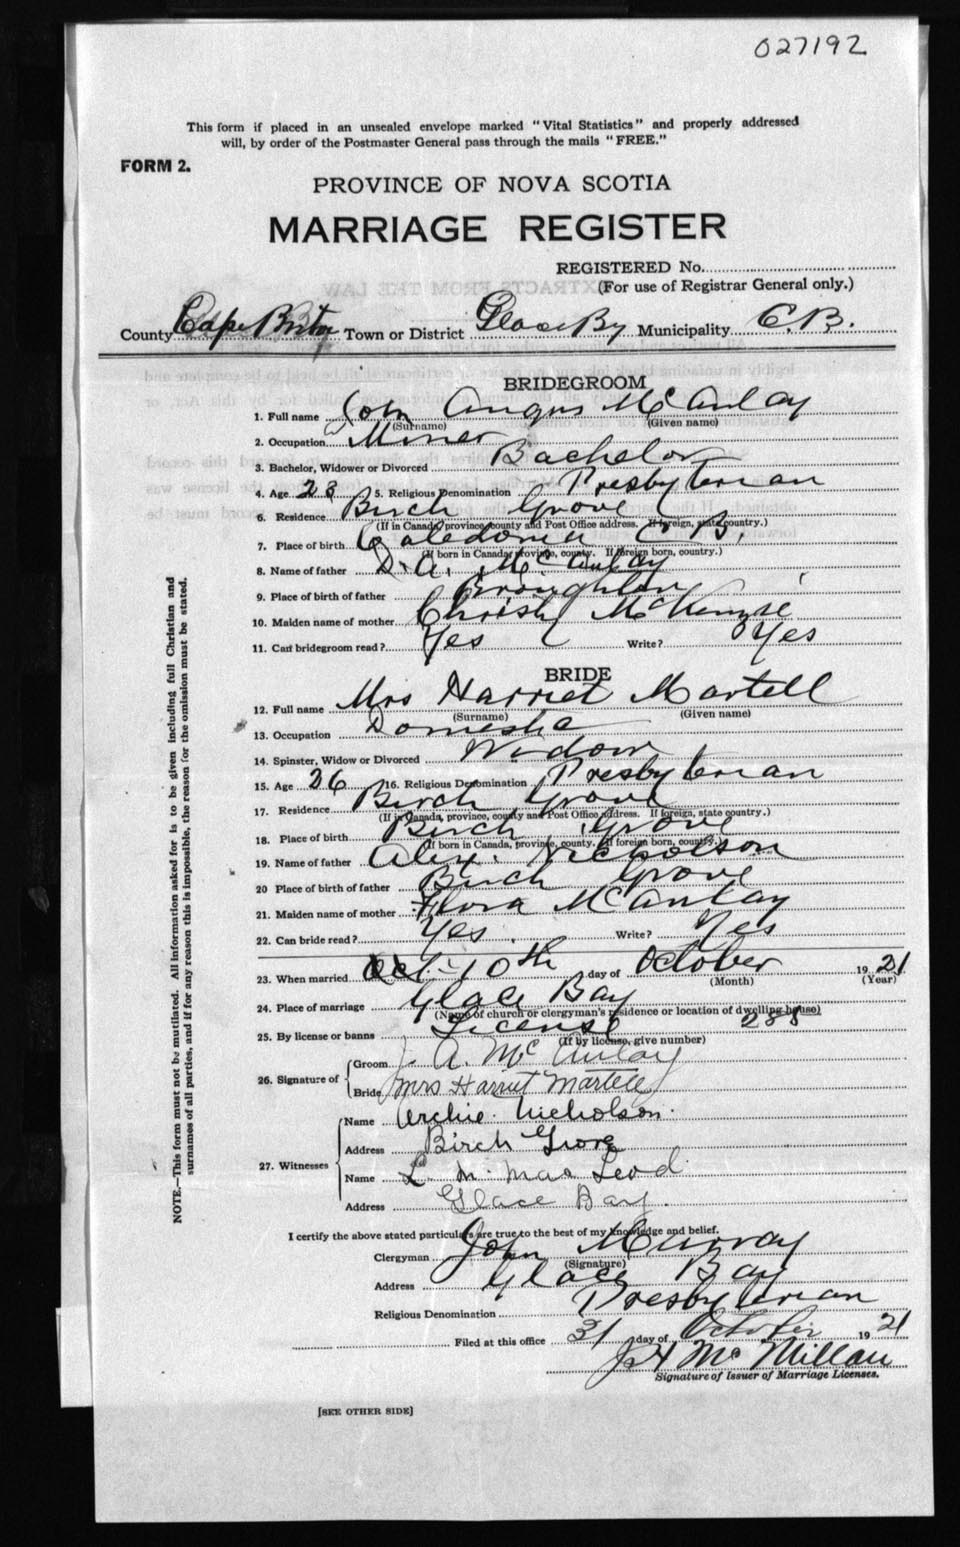 027192
This form if placed in an unsealed envelope marked "Vital Statistics" and properly addressed
will, by order of the Postmaster General pass through the mails "FREE."
FORM 2.
PROVINCE OF NOVA SCOTIA
MARRIAGE REGISTER
REGISTERED No.
(For use of Registrar General only.)
County Cape Breton Town or District Glace Bay Municipality C.B.
BRIDEGROOM
1. Full name John Angus McAulay
(Surname) (Given name)
2. Occupation Miner
3. Bachelor, Widower or Divorced Bachelor
4. Age 28 5. Religious Denomination Presbyterian
6. Residence Birch Grove
(If in Canada, province, county and Post Office address. If foreign, state country.)
7. Place of birth Caledonia C B.
(If born in Canada, province, county. If foreign born, country.)
8. Name of father D. A. McAulay
9. Place of birth of father Broughton
10. Maiden name of mother Christy McKenzie
11. Can bridegroom read? Yes Write? Yes
BRIDE
12. Full name Mrs Harriet Martell
(Surname) (Given name)
13. Occupation Domestic
14. Spinster, Widow or Divorced Widow
15. Age 26 16. Religious Denomination Presbyterian
17. Residence Birch Grove
(If in Canada, province, county and Post Office address. If foreign, state country.)
18. Place of birth Birch Grove
(If born in Canada, province, county. If foreign born, country.)
19. Name of father Alex. Nicholson
20 Place of birth of father Birch Grove
21. Maiden name of mother Flora McAulay
22. Can bride read? Yes. Write? Yes
23. When married 10th day of October 1921
(Month) (Year)
24. Place of marriage Glace Bay
(Name of church or clergyman's residence or location of dwelling house)
25. By license or banns License 288
(If by license, give number)
26. Signature of
Groom J. A. McAulay
Bride Mrs Harriet Martell
27. Witnesses
Name Archie Nicholson.
Address Birch Grove
Name L. M. MacLeod
Address Glace Bay.
I certify the above stated particulars are true to the best of my knowledge and belief.
Clergyman John Murray
(Signature)
Address Glace Bay
Religious Denomination Presbyterian
Filed at this office 31 day of October 1921
McMillan
Signature of Issuer of Marriage Licenses.
[SEE OTHER SIDE]
NOTE.—This form must not be mutilated. All information asked for is to be given including full Christian and
surnames of all parties, and if for any reason this is impossible, the reason for the omission must be stated.